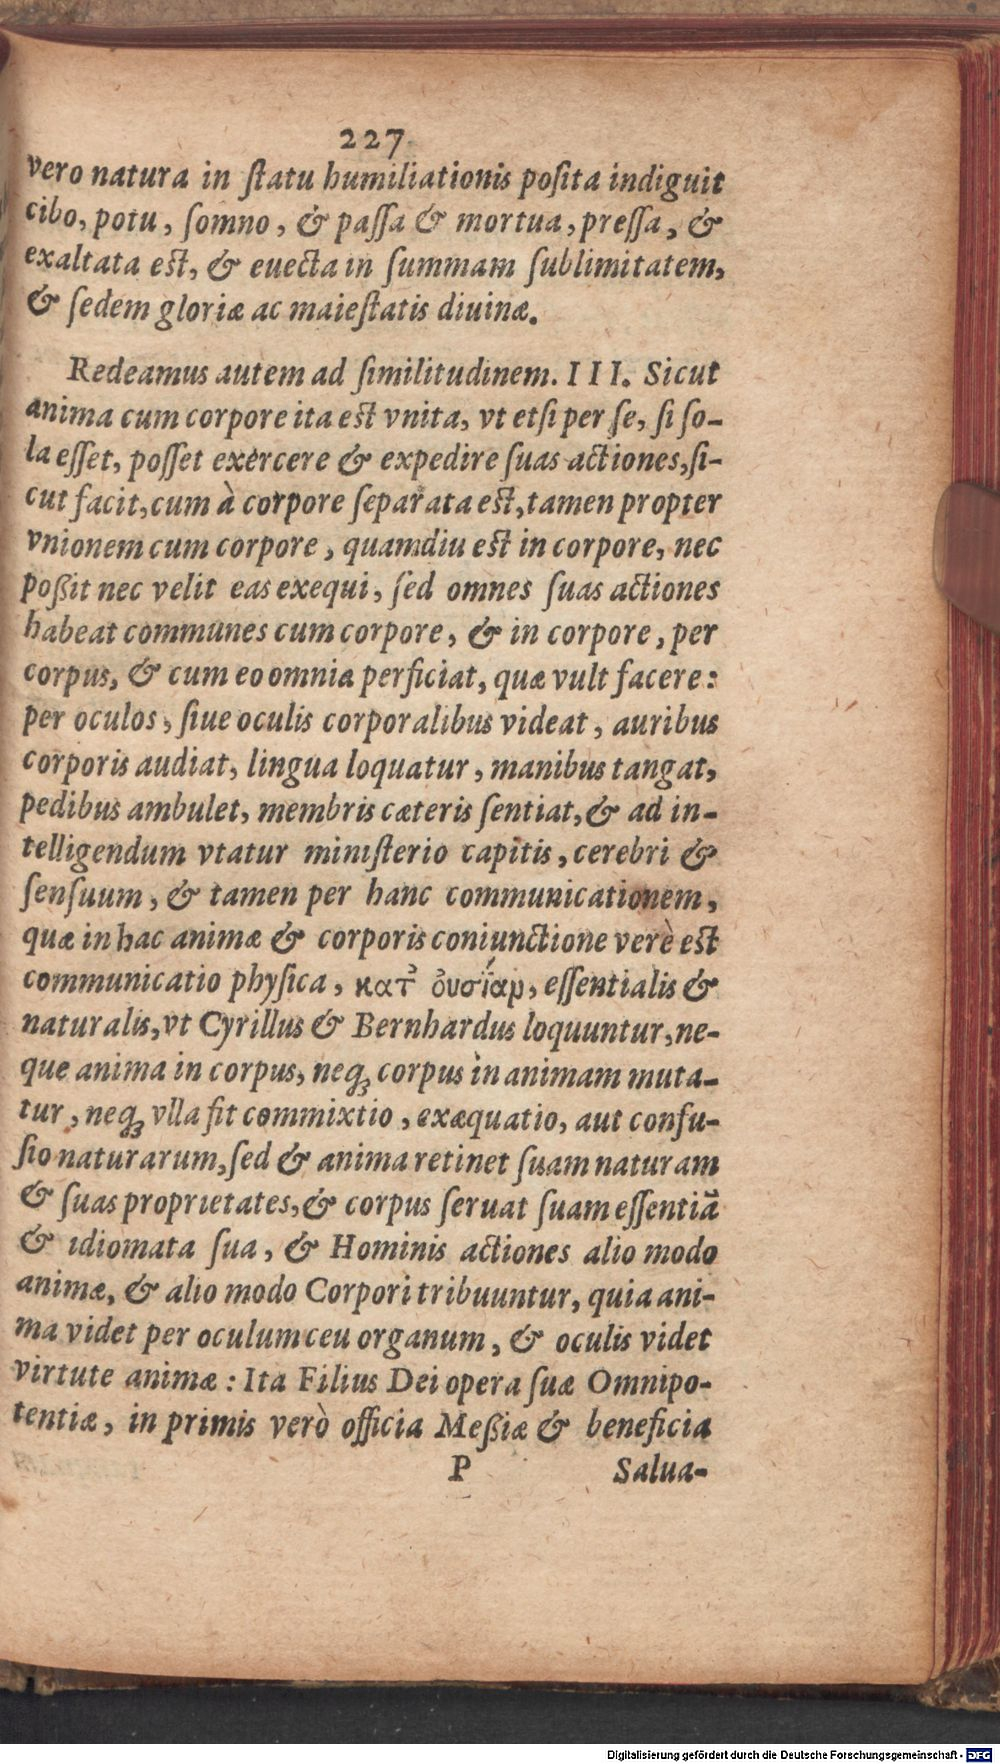 227
vero natura in ſtatu humiliationis poſita indiguit
cibo, potu, ſomno, & paſſa & mortua, preſſa, &
exaltata est, & euecta in ſummam ſublimitatem,
& ſedem gloriæ ac maieſtatis diuinæ.
Redeamus autem ad ſimilitudinem. III. Sicut
anima cum corpore ita est vnita, vt etſi per ſe, ſi ſo-
la eſſet, poſſet exercere & expedire ſuas actiones, ſi-
cut facit, cum à corpore ſeparata est, tamen propter
vnionem cum corpore, quamdiu est in corpore, nec
poßit nec velit eas exequi, ſed omnes ſuas actiones
habeat communes cum corpore, & in corpore, per
corpus, & cum eo omnia perficiat, quæ vult facere:
per oculos, ſiue oculis corporalibus videat, auribus
corporis audiat, lingua loquatur, manibus tangat,
pedibus ambulet, membris cæteris ſentiat, & ad in-
telligendum vtatur miniſterio capitis, cerebri &
ſenſuum, & tamen per hanc communicationem,
quæ in hac animæ & corporis coniunctione verè est
communicatio phyſica, κατ᾽ ὀυσίαν, eſſentialis &
naturalis, vt Cyrillus & Bernhardus loquuntur, ne-
que anima in corpus, neq́ꝫ corpus in animam muta-
tur, neq́ꝫ vlla fit commixtio, exæquatio, aut confu-
ſio naturarum, ſed & anima retinet ſuam naturam
& ſuas proprietates, & corpus ſeruat ſuam eſſentiã
& idiomata ſua, & Hominis actiones alio modo
animæ, & alio modo Corpori tribuuntur, quia ani-
ma videt per oculum ceu organum, & oculis videt
virtute animæ: Ita Filius Dei opera ſuæ Omnipo-
tentiæ, in primis verò officia Meßiæ & beneficia
P Salua-
Digitalisierung gefördert durch die Deutsche Forschungsgemeinschaft - DFG